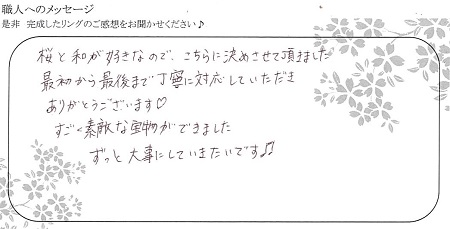 職人へのメッセージ
是非 完成したリングのご感想をお聞かせください♪
桜と和が好きなので、こちらに決めさせて頂ました
最初から最後まで丁寧に対応していただき
ありがとうございます♡
すごく素敵な宝物ができました
ずっと大事にしていきたいです♫